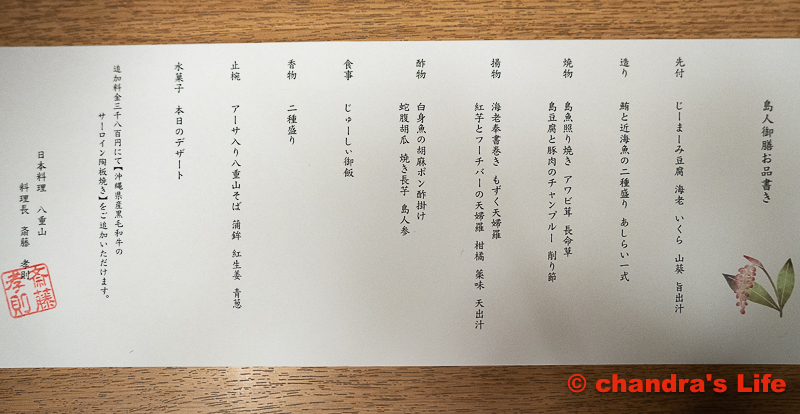 島人御膳お品書き
先付 じーまーみ豆腐 海老 いくら 山葵 旨出汁
造り 鮪と近海魚の二種盛り あしらい一式
焼物 島魚照り焼き アワビ茸 長命草
島豆腐と豚肉のチャンプルー 削り節
揚物 海老奉書巻き もずく天婦羅
紅芋とフーチバーの天婦羅 柑橘 薬味 天出汁
酢物 白身魚の胡麻ポン酢掛け
蛇腹胡瓜 焼き長芋 島人参
食事 じゅーしぃ御飯
香物 二種盛り
止椀 アーサ入り八重山そば 蒲鉾 紅生姜 青葱
水菓子 本日のデザート
追加料金三千八百円にて【沖縄県産黒毛和牛の
サーロイン陶板焼き】をご追加いただけます。
日本料理 八重山
料理長 斎藤 孝則
斎藤
孝則
© chandra's Life